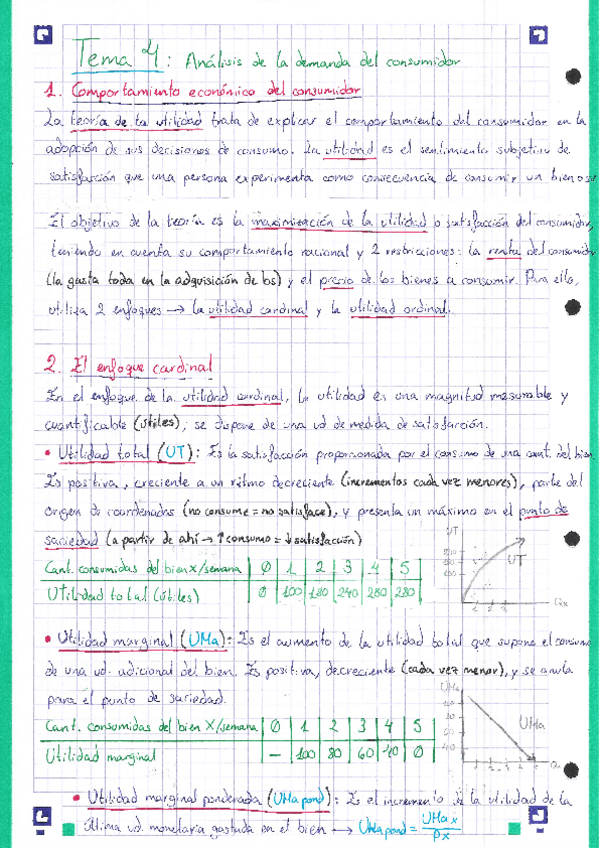 Tema 4: Análisis de la demanda del consumidor
1. Comportamiento económico del consumidor
La teoría de la utilidad trata de explicar el comportamiento del consumidor en la
adopción de sus decisiones de consumo. La utilidad es el sentimiento subjetivo de
satisfacción que una persona experimenta como consecuencia de consumir un bien o
El objetivo de la teoría es la maximización de la utilidad o satisfacción del consumidor,
teniendo en cuenta su comportamiento racional y 2 restricciones: la renta del consumidor
(la gasta toda en la adquisición de bs) y el precio de los bienes a consumir. Para ello,
utiliza 2 enfoques → la utilidad cardinal y la utilidad ordinal.
2. El enfoque cardinal
En el enfoque de la utilidad cardinal, la utilidad es una magnitud mesurable y
cuantificable (útiles), se dispone de una ud. de medida de satisfacción.
• Utilidad total (UT): Es la satisfacción proporcionada por el consumo de una cant. del bien.
Es positiva, creciente a un ritmo decreciente (incrementos cada vez menores), parte del
origen de coordenadas (no consume = no satisface), y presenta un máximo en el punto de
saciedad (a partir de ahí → ↑ consumo = ↓ satisfacción)
UT
Cant. consumidas del bien X/semana | 0 | 1 | 2 | 3 | 4 | 5
Utilidad total (útiles) | 0 | 100 | 180 | 240 | 280 | 280
UT
Qx
• Utilidad marginal (UMa): Es el aumento de la utilidad total que supone el consumo
de una ud. adicional del bien. Es positiva, decreciente (cada vez menor), y se anula
para el punto de saciedad.
UMa
Cant. consumidas del bien X/semana | 0 | 1 | 2 | 3 | 4 | 5
Utilidad marginal | - | 100 | 80 | 60 | 40 | 0
UMa
• Utilidad marginal ponderada (UMa pond): Es el incremento de la utilidad de la
última ud. monetaria gastada en el bien → UMa pond = UMa x / Px